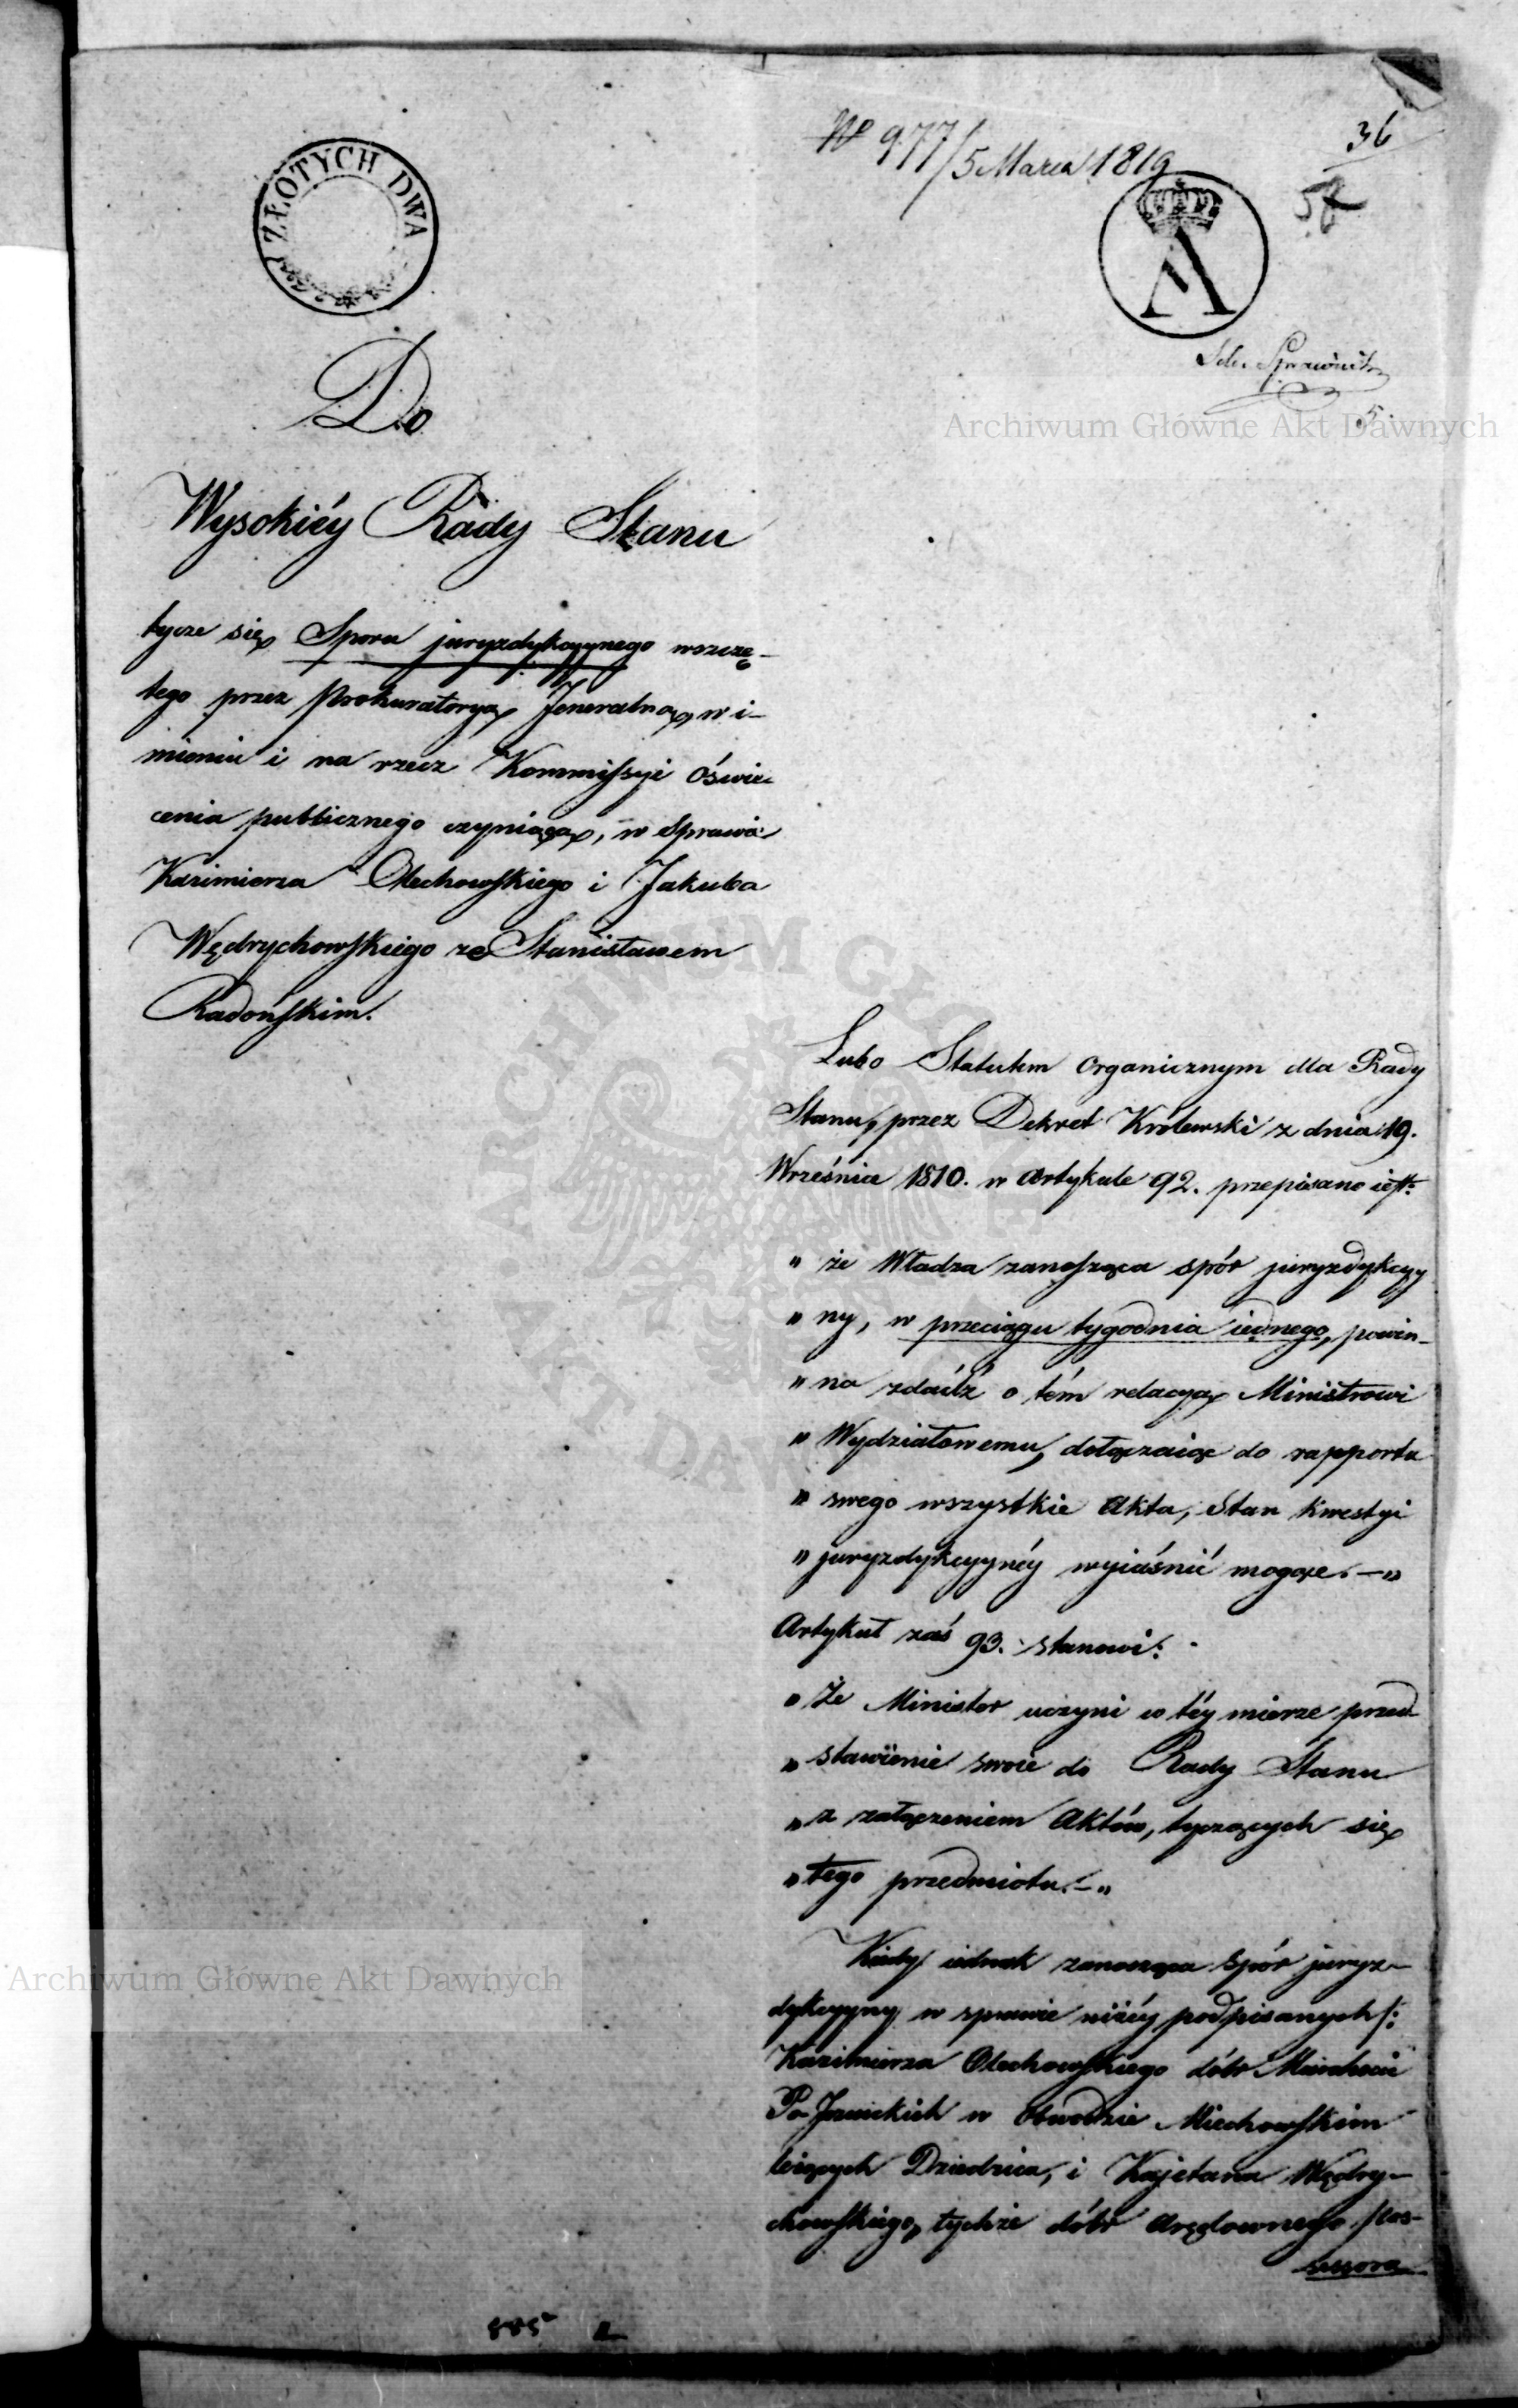 No 977/5 Marca 1819
36
ZŁOTYCH DWA
A
Do
Wysokiéy Rady Stanu
tycze się Sporu juryzdykcyynego wszczę-
tego przez Prokuratoryą Jeneralną, w i-
mieniu i na rzecz Kommissyi Oświe-
cenia publicznego czyniącą, w Sprawie
Kazimierza Olechowskiego i Jakuba
Wędrychowskiego ze Stanisławem
Radońskim.
Lubo Statutem Organicznym dla Rady
Stanu, przez Dekret Królewski z dnia 19.
Września 1810. w Artykule 92. przepisano iest:
„ że Władza zanosząca spór juryzdykcyy
„ ny, w przeciągu tygodnia iednego, powin-
„ na zdaidź o tém relacyą Ministrowi
„ Wydziałowemu, dołączaiąc do rapportu
„ swego wszystkie Akta, Stan kwestyi
„ juryzdykcyynéy wyiaśnić mogące. — „
Artykuł zaś 93. stanowi:
„ Że Minister uczyni w téy mierze przed-
„ stawienie swoie do Rady Stanu
„ z załączeniem Aktów, tyczących się
„ tego przedmiotu. — „
Kiedy iednak zanosząca Spór juryz-
dykcyyny w sprawie niżéy podpisanych /:
Kazimierza Olechowskiego dóbr
w Obwodzie Miechowskim
leżących Dziedzica, i Kajetana Wędry-
chowskiego, tychże dóbr Arędownego Pos-
sessora
Archiwum Główne Akt Dawnych
Archiwum Główne Akt Dawnych